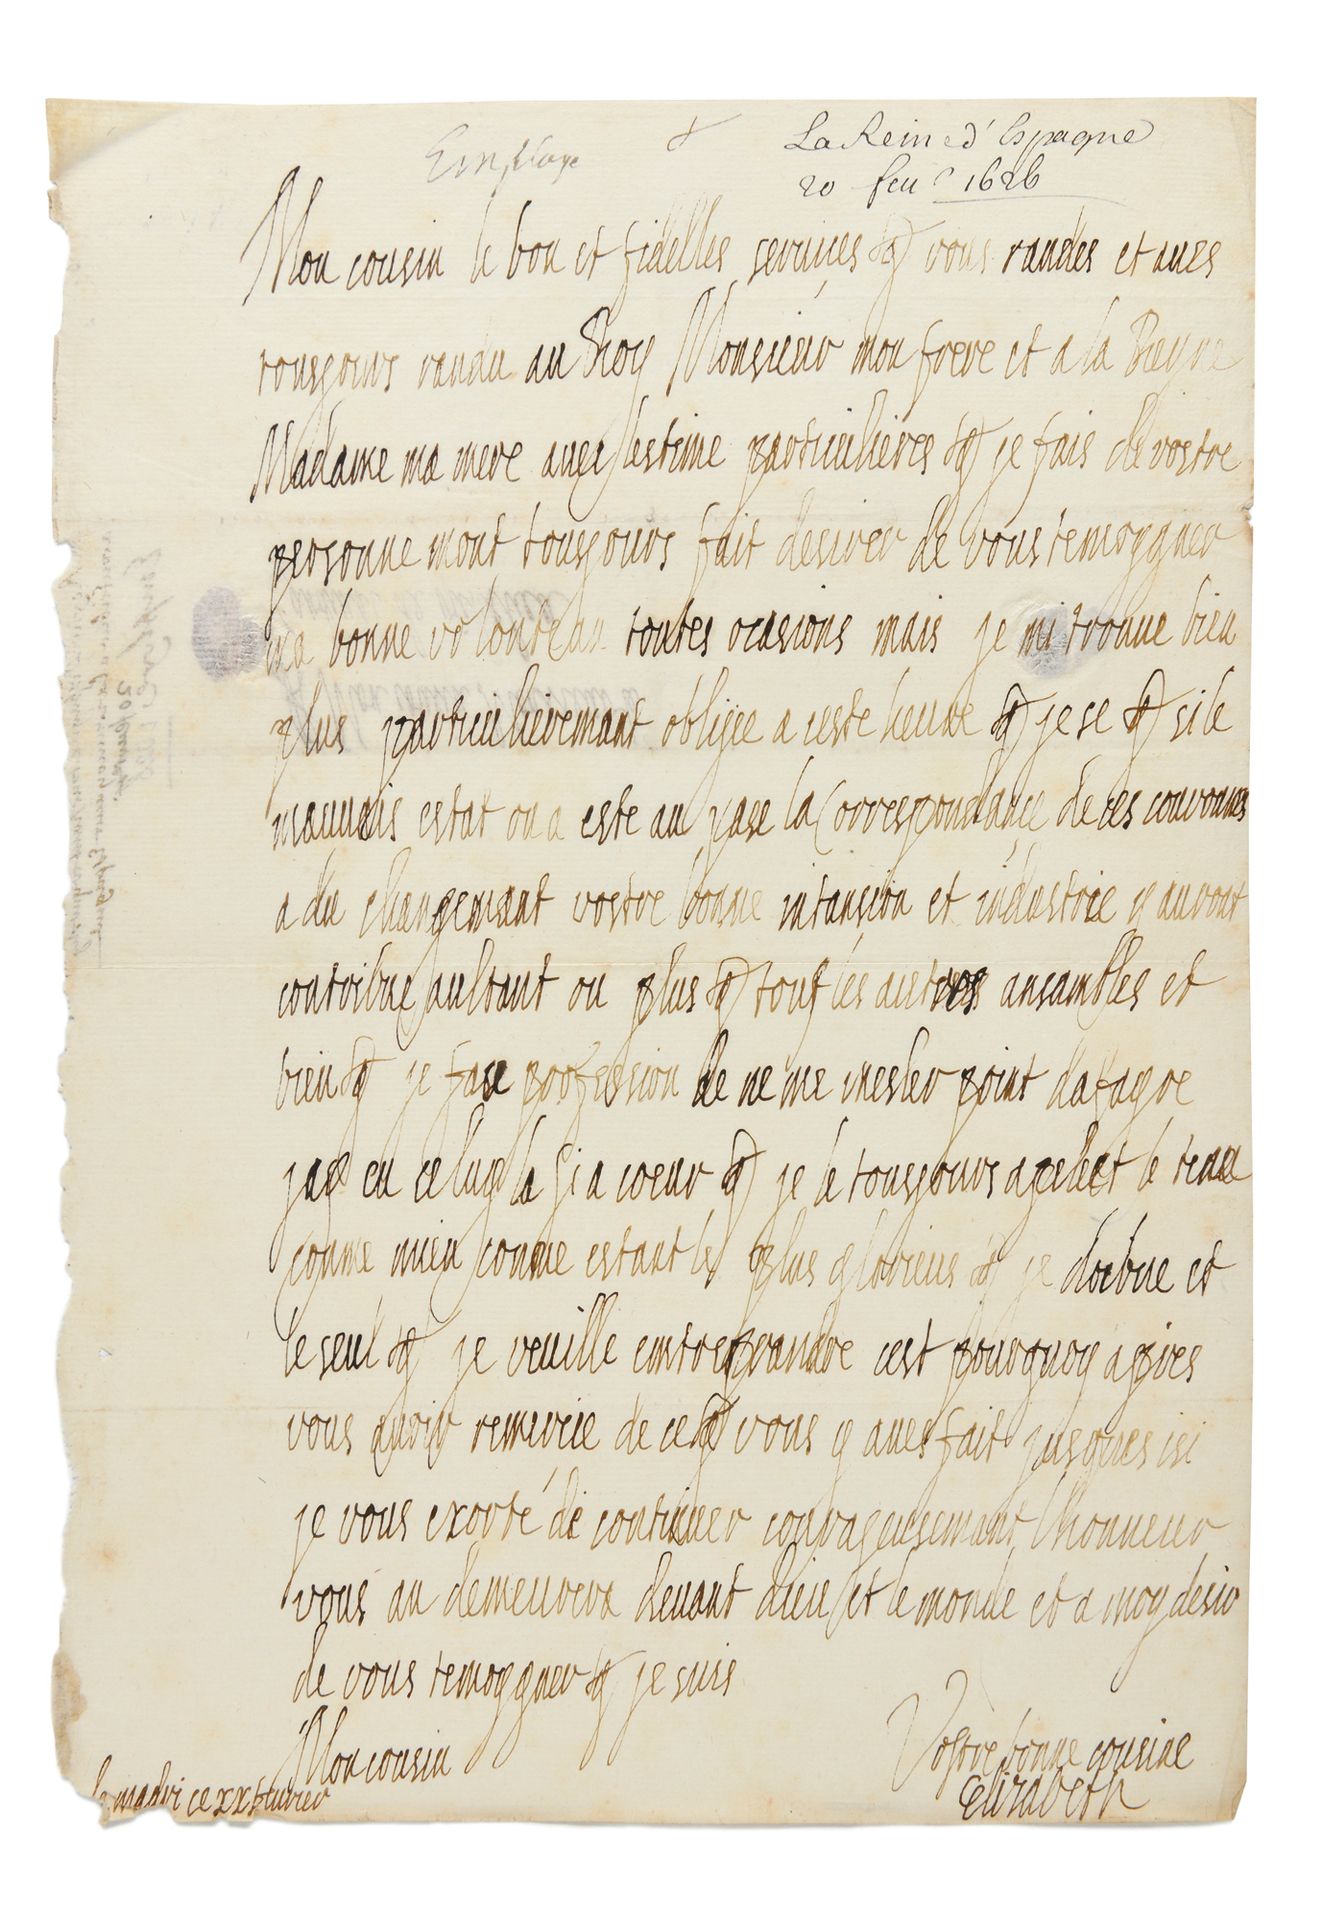 La Reine d'Espagne
20 feu. 1626
Mon cousin le bon et fidelles seruices q vous randes et aues
tousjours randu au Roy Monsieur mon frere et a la Reyne
Madame ma mere auec lestime particulieres q je fais de vostre
personne mont tousjours fait desirer de vous temoygner
ma bonne volonte an toutes ocasions mais je mi trouue bien
plus particulieremant obligee a ceste heure q je se q si le
mauuais estat ou a este au pase la Correspondance de ces couronnes
a du changemant vostre bonne intansion et industrie y auront
contribue aultant ou plus q tous les autres ansambles et
bien q je fase profession de ne me mesler point dafayre
jay en celuy la si a coeur q je le tousjours apelle et le tiens
comme mien comme estant le plus glorieus q je doibue et
le seul q je veuille entreprandre cest pourquoy apres
vous auoir remercie de ce q vous y aues fait jusques isi
je vous exorte de continuer courageusemant lhonneur
vous an demeurera deuant dieu et le monde et a moy desir
de vous temoygner q je suis
Mon cousin
Vostre bonne cousine
Elizabeth
de madri ce xx feurier